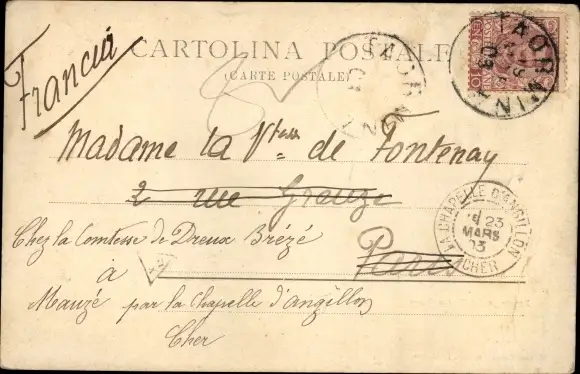 Francia
CARTOLINA POSTALE
(CARTE POSTALE)
TAORMINA
Madame la Vtesse de Fontenay
2 rue Greuze
Paris
LA CHAPELLE D'ANGILLON
23
MARS
03
CHER
Chez la Comtesse de Dreux Brézé
à
Mauzé par la Chapelle d'Angillon
Cher